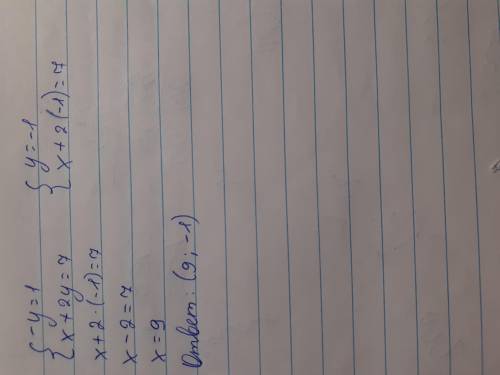 { -y=1 { y=-1
{ x+2y=7 { x+2(-1)=7
x+2·(-1)=7
x-2=7
x=9
Ответ: (9; -1)